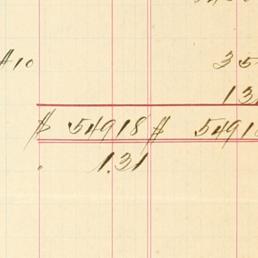 #10 35
13
$ 54918 $ 5491
1.31